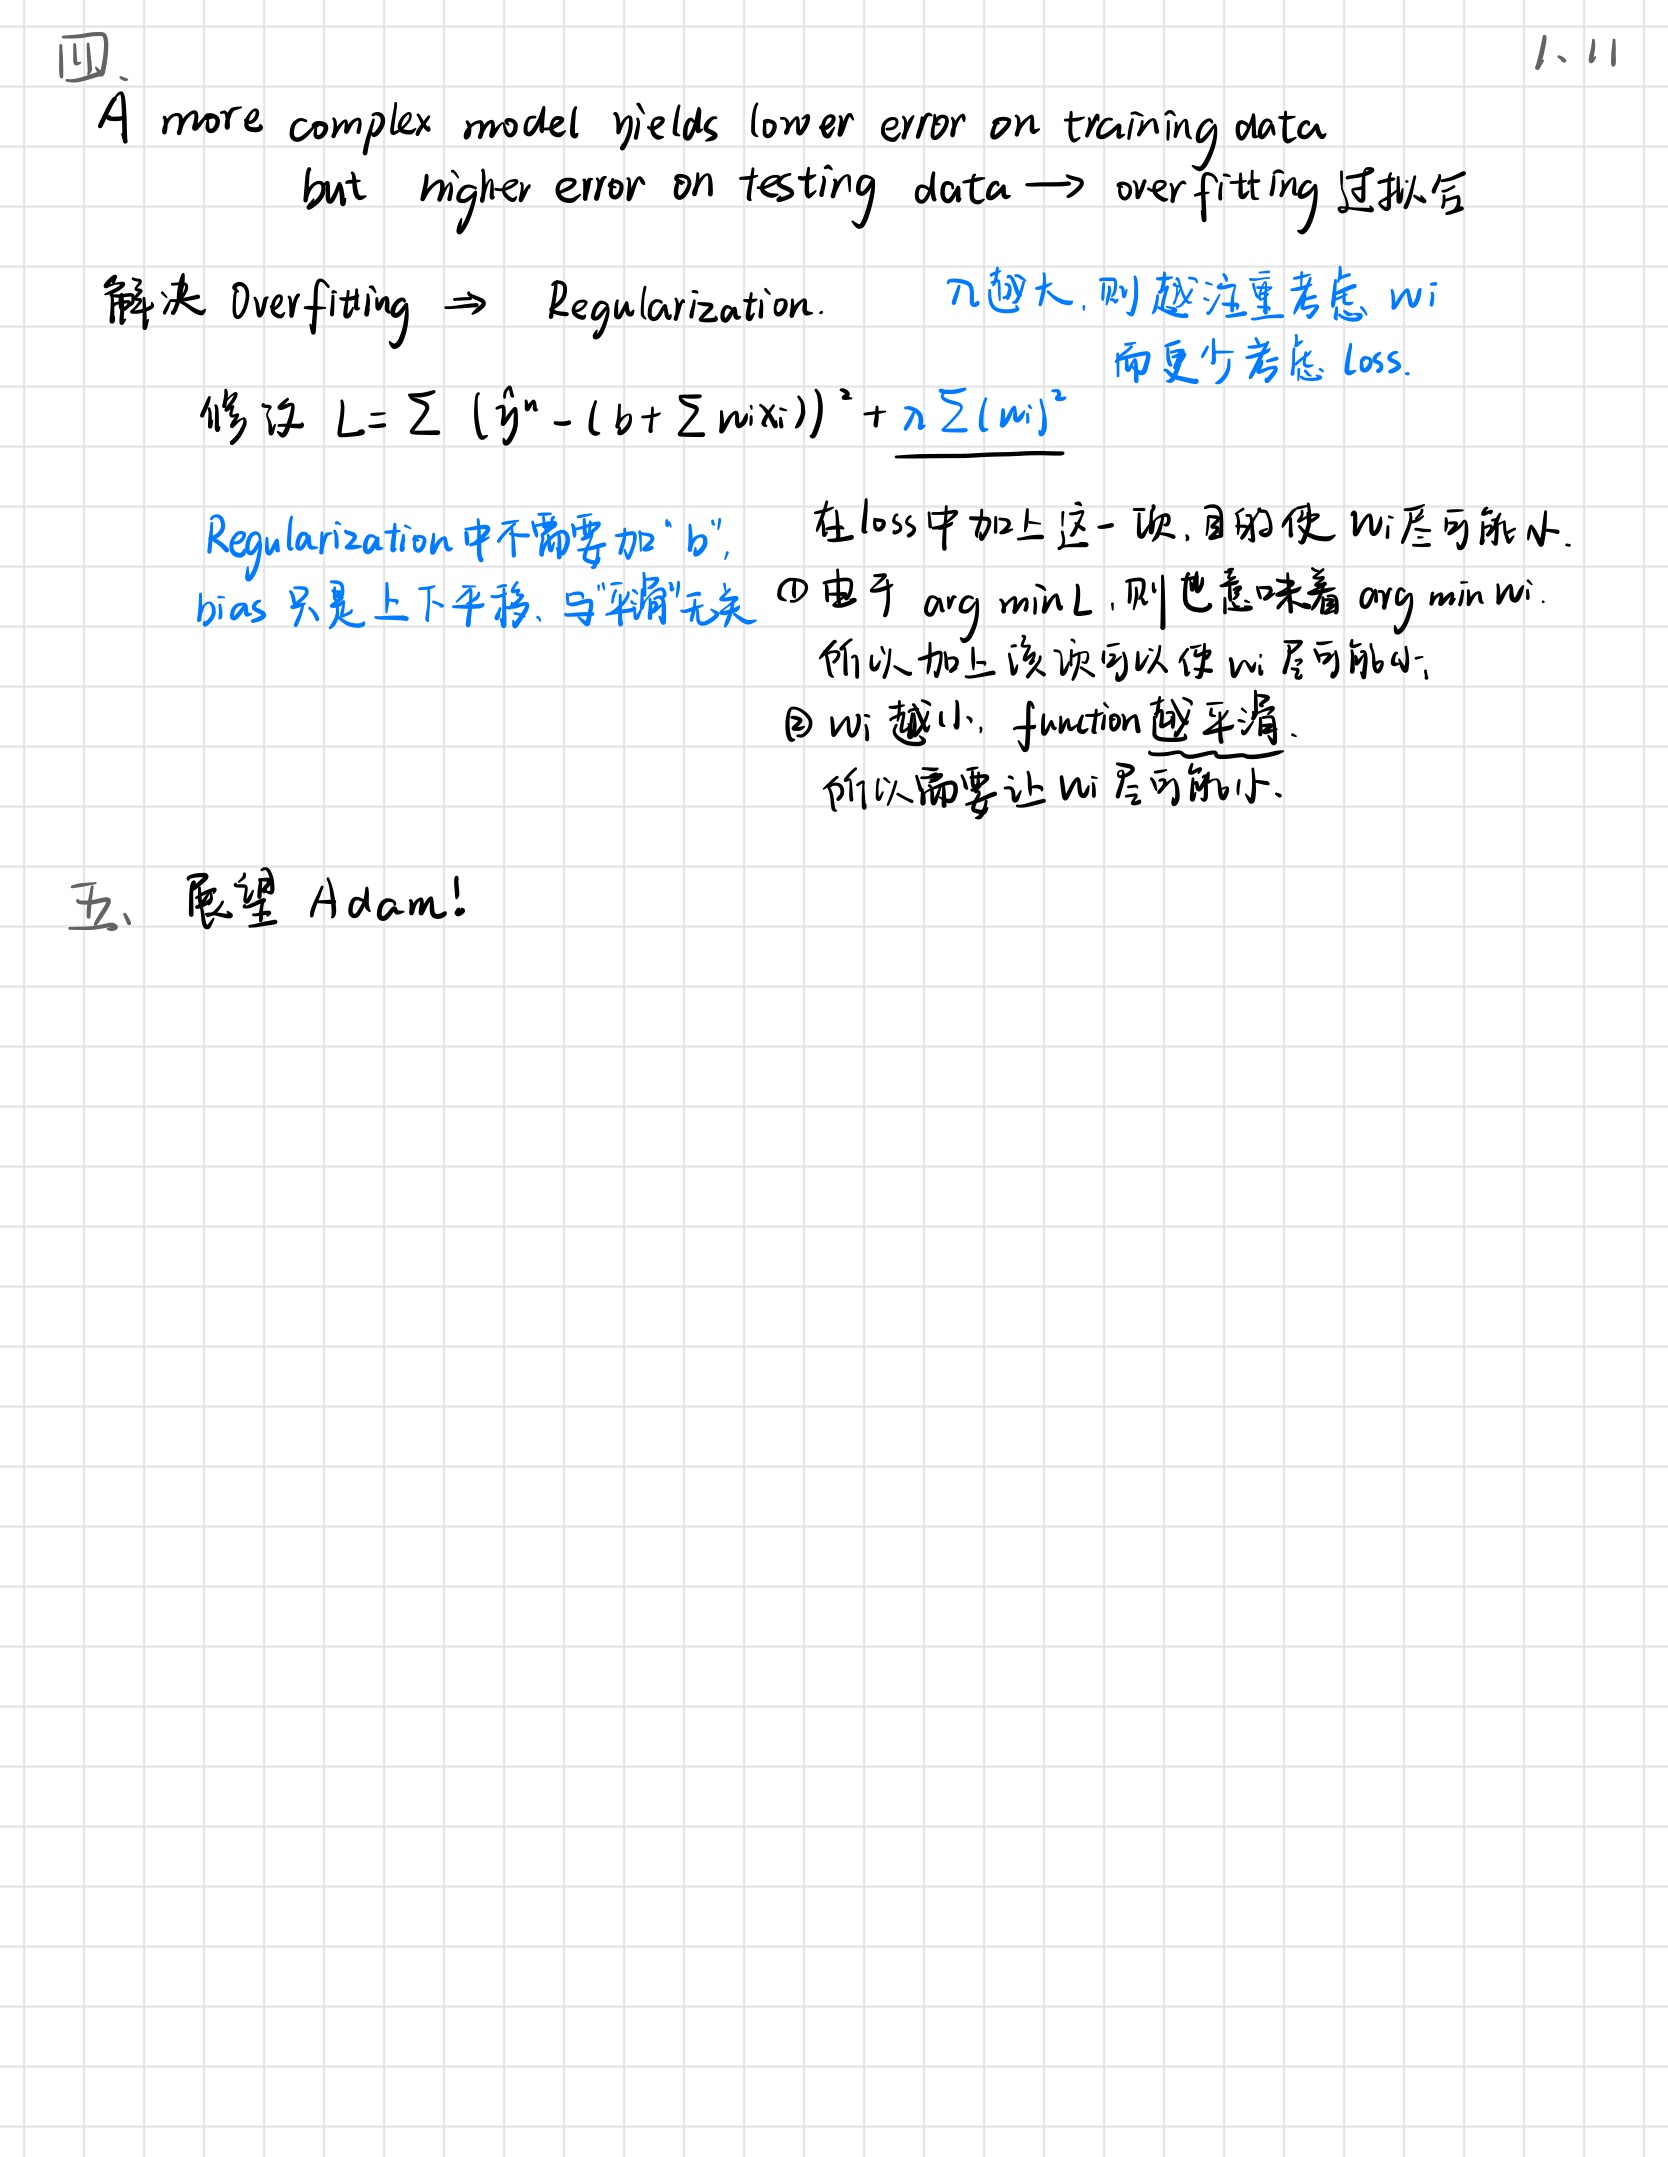 四、
1、11
A more complex model yields lower error on training data
but higher error on testing data → overfitting 过拟合
解决 Overfitting ⇒ Regularization.
λ越大,则越注重考虑 wi
而更少考虑 loss.
修改 L= ∑ (ŷⁿ - (b + ∑ wixi))² + λ∑(wi)²
Regularization中不需要加“b”,
bias 只是上下平移、与“平滑”无关
在loss中加上这一项,目的使 wi尽可能小.
① 由于 arg min L,则也意味着 arg min wi.
所以加上该项可以使 wi 尽可能小;
② wi 越小, function越平滑.
所以需要让 wi 尽可能小.
五、 展望 Adam!